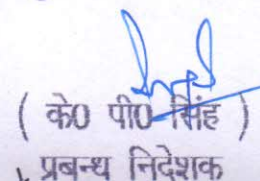 ( के0 पी0 सिंह )
प्रबन्ध निदेशक